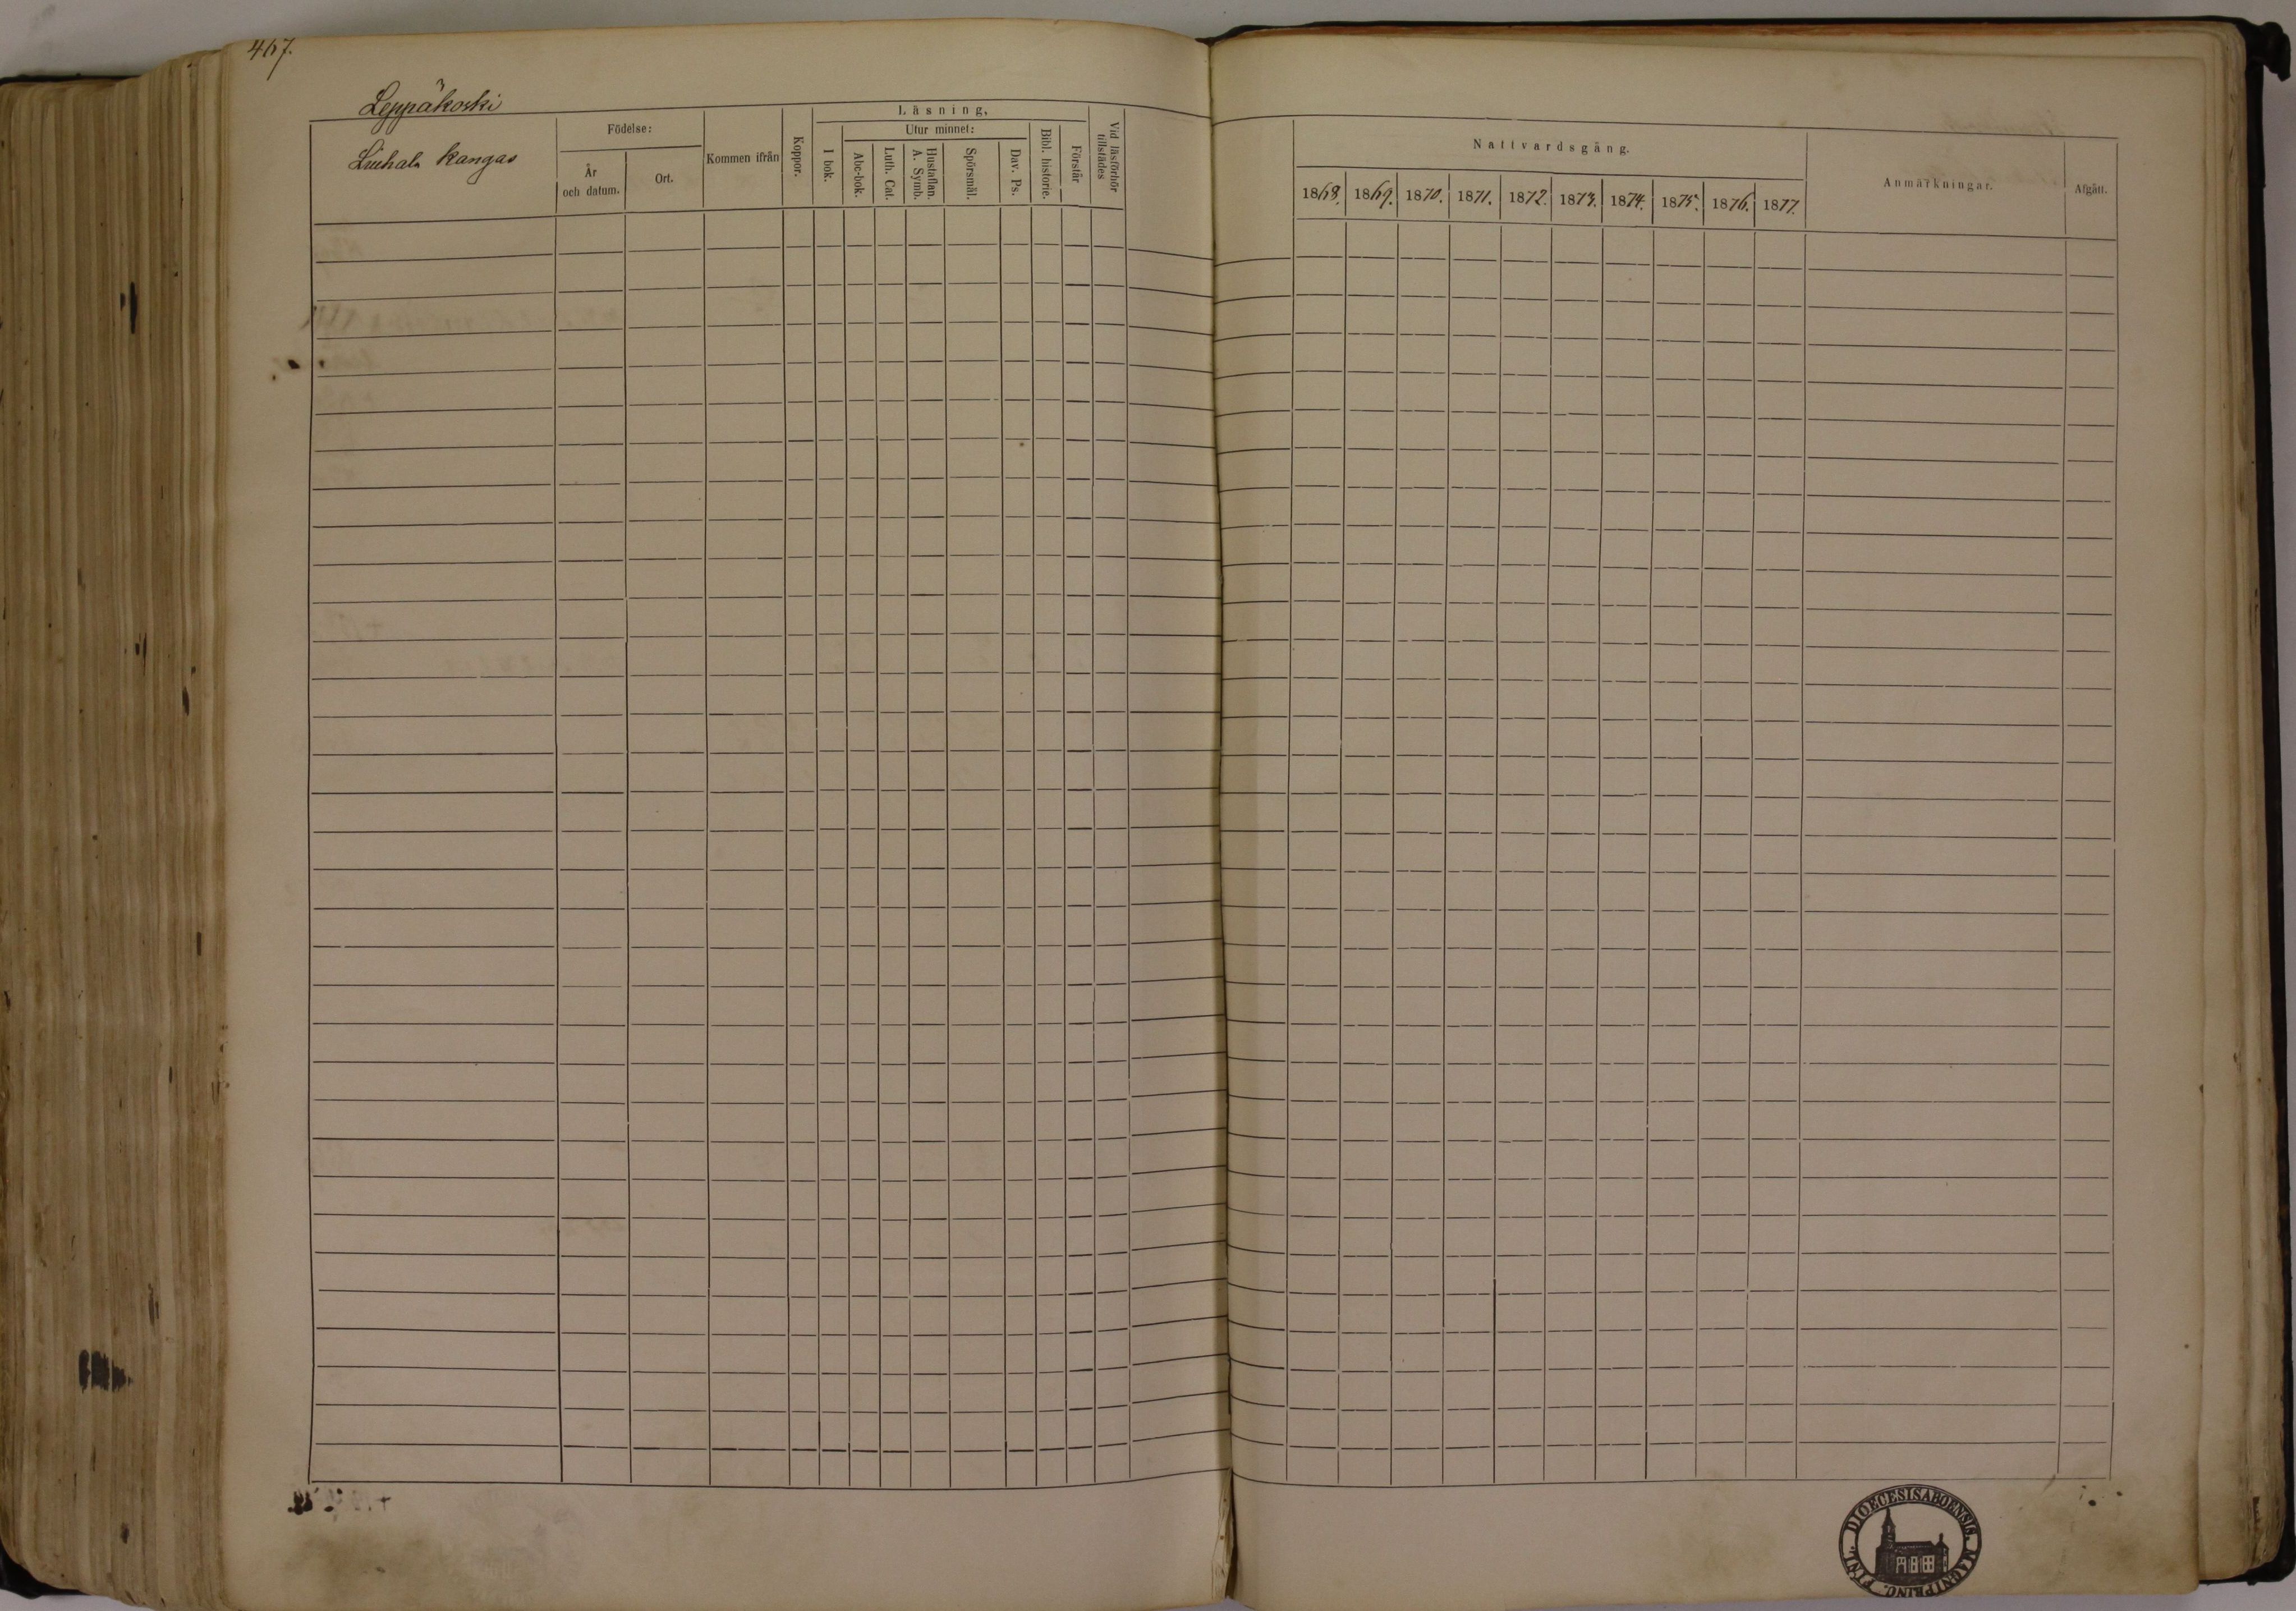 467.
Leppäkoski
Liuhala Kangas
Födelse:
År
och datum.
Ort.
Kommen ifrån
Koppor.
Läsning.
I bok.
Utur minnet:
Abc-bok.
Luth. Cat.
Hustaflan.
A. Symb.
Spörsmål.
Dav. Ps.
Bibl. historie.
Förstår
Vid läsförhör
tillstädes
Nattvardsgång.
1868. 1869. 1870. 1871. 1872. 1873. 1874. 1875. 1876. 1877.
Anmärkningar.
Afgått.
DIOECESIS ABOENSIS. MAGNI PRINC. FINL.